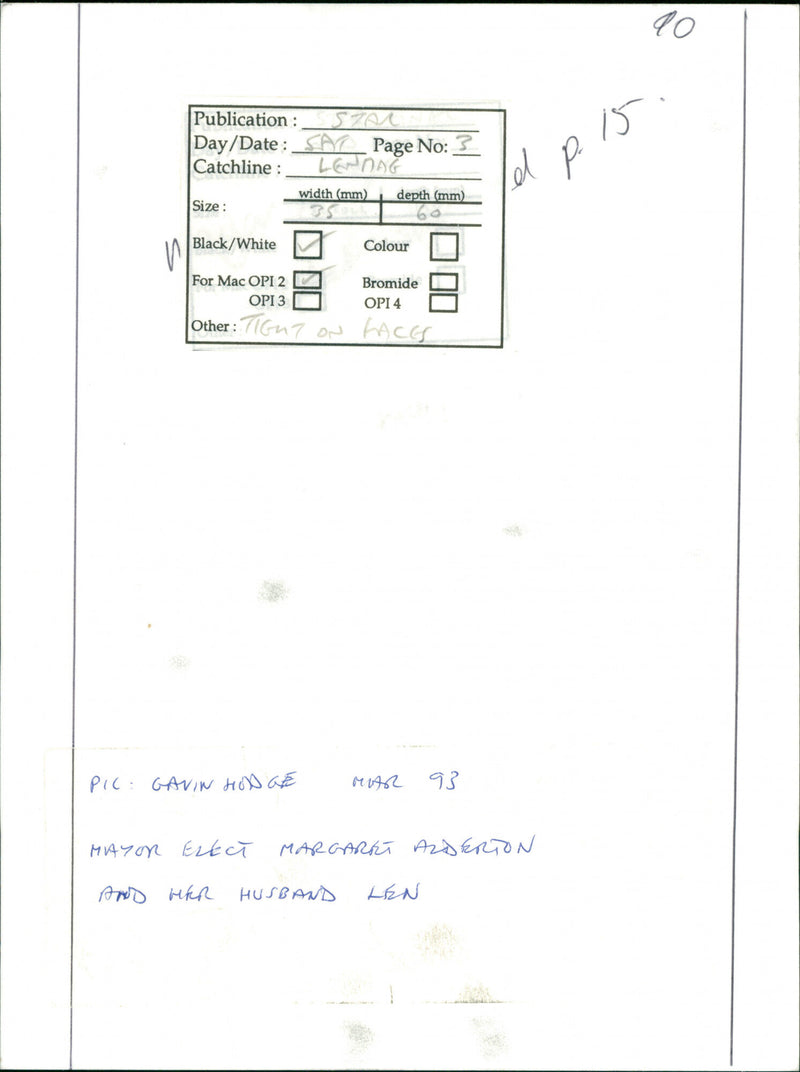 90
d p. 15
Publication : STAR
Day/Date : SAT Page No: 3
Catchline : LENMAG
width (mm) depth (mm)
Size : 35 60
Black/White Colour
For Mac OPI 2 Bromide
OPI 3 OPI 4
Other : TIGHT ON FACES
PIC: GAVIN HODGE MAR 93
MAYOR ELECT MARGARET ALDERTON
AND HER HUSBAND LEN